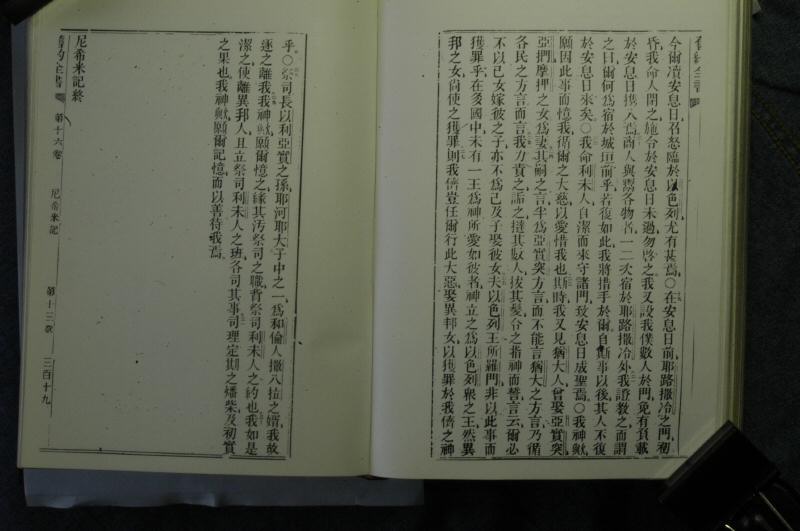 舊約全書
今爾瀆安息日召怒臨於以色列尤有甚焉〇在安息日前耶路撒冷之門初
昏我命人閉之施令於安息日未過勿啓之我又設我僕數人於門免有負載
於安息日攜入焉商人與鬻各物者一二次宿於耶路撒冷外我證教之而謂
之曰爾何爲宿於城垣前乎若復如此我將措手於爾自斯事以後其人不復
於安息日來矣〇我命利未人自潔而來守諸門致安息日成聖焉〇我神歟
願因此事而憶我循爾之大慈以愛惜我也斯時我又見猶大人曾娶亞實突
亞捫摩押之女爲妻其嗣之言半爲亞實突方言而不能言猶大之方言乃循
各民之方言而言我力責之詬之撻其數人拔其髮令之指神而誓言云爾必
不以己女嫁彼之子亦不爲己及子娶彼女夫以色列王所羅門非以此事而
獲罪乎在多國中未有一王爲神所愛如彼者神立之爲以色列衆之王然異
邦之女尚使之獲罪則我儕豈任爾行此大惡娶異邦女以獲罪於我儕之神
乎〇祭司長以利亞實之孫耶河耶大子中之一爲和倫人撒八拉之婿我故
逐之離我我神歟願爾憶之緣其污祭司之職背祭司利未人之約也我如是
潔之使離異邦人且立祭司利未人之班各司其事司理定期之燔柴及初實
之果也我神歟願爾記憶而以善待我焉
尼希米記終
舊約全書 第十六卷 尼希米記 第十三章 三百十九